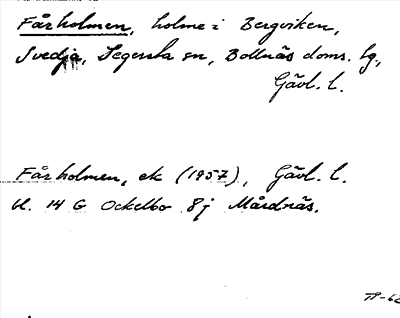 Fårholmen, holme i Bergviken,
Svedja, Segersta sn, Bollnäs doms. hg.,
Gävl. l.
Fårholmen, ek (1957), Gävl. l.
bl. 14 G Ockelbo 8j Mårdnäs.